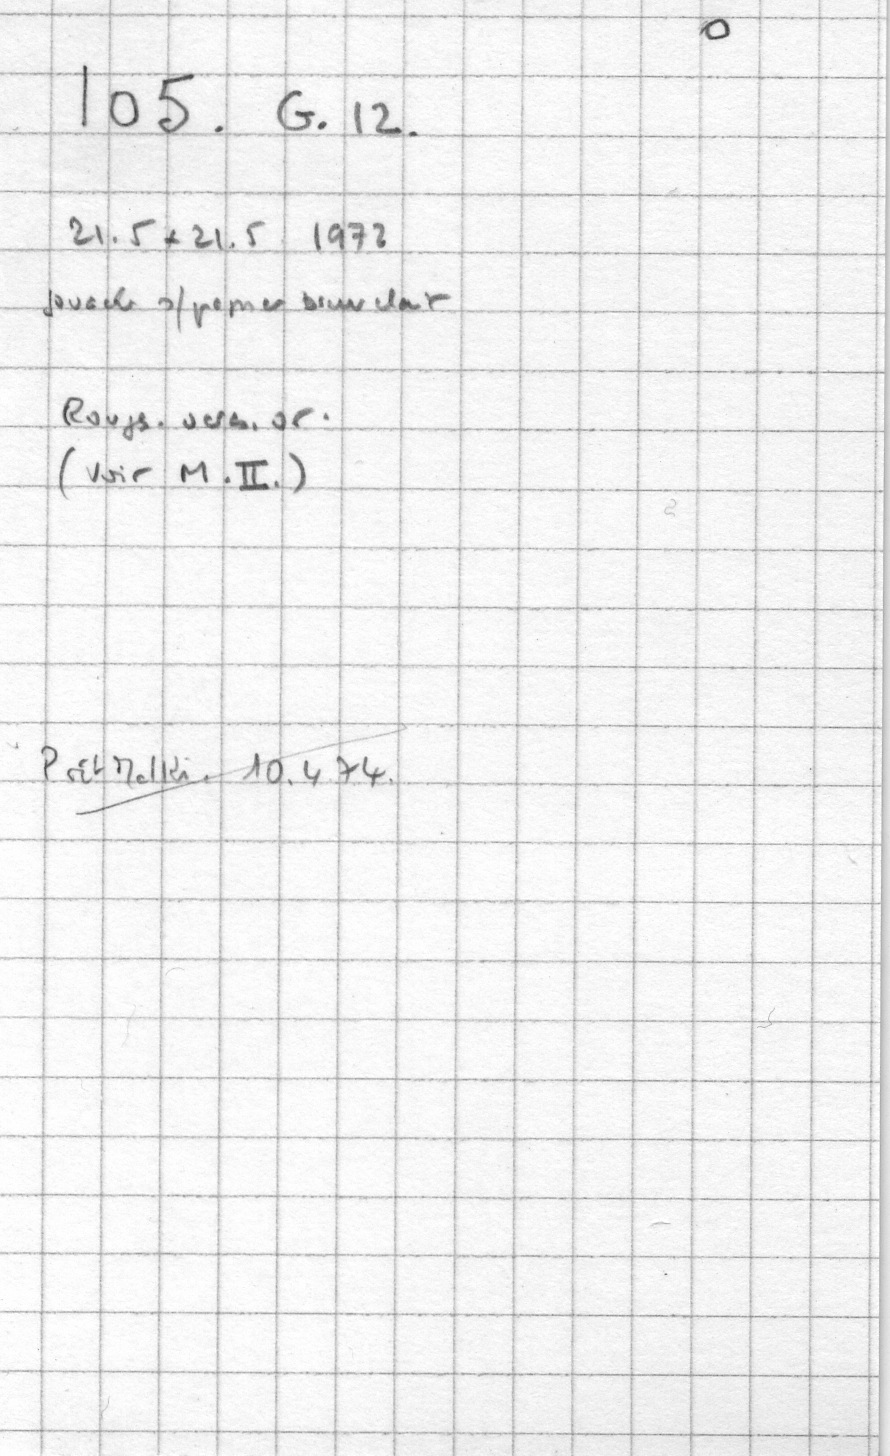 O
105. G. 12.
21.5 x 21.5 1973
gouache s/papier brun clair
Rouge. vers. or.
(Voir M.II.)
Prêt Malki. 10.4.74.